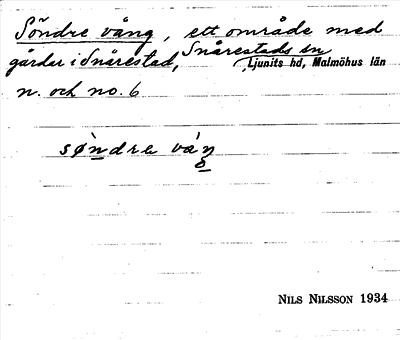 Söndre vång, ett område med
gårdar i Snårestad, Snårestads sn
, Ljunits hd, Malmöhus län
n. och no. 6
sø̀ndre vá
NILS NILSSON 1934